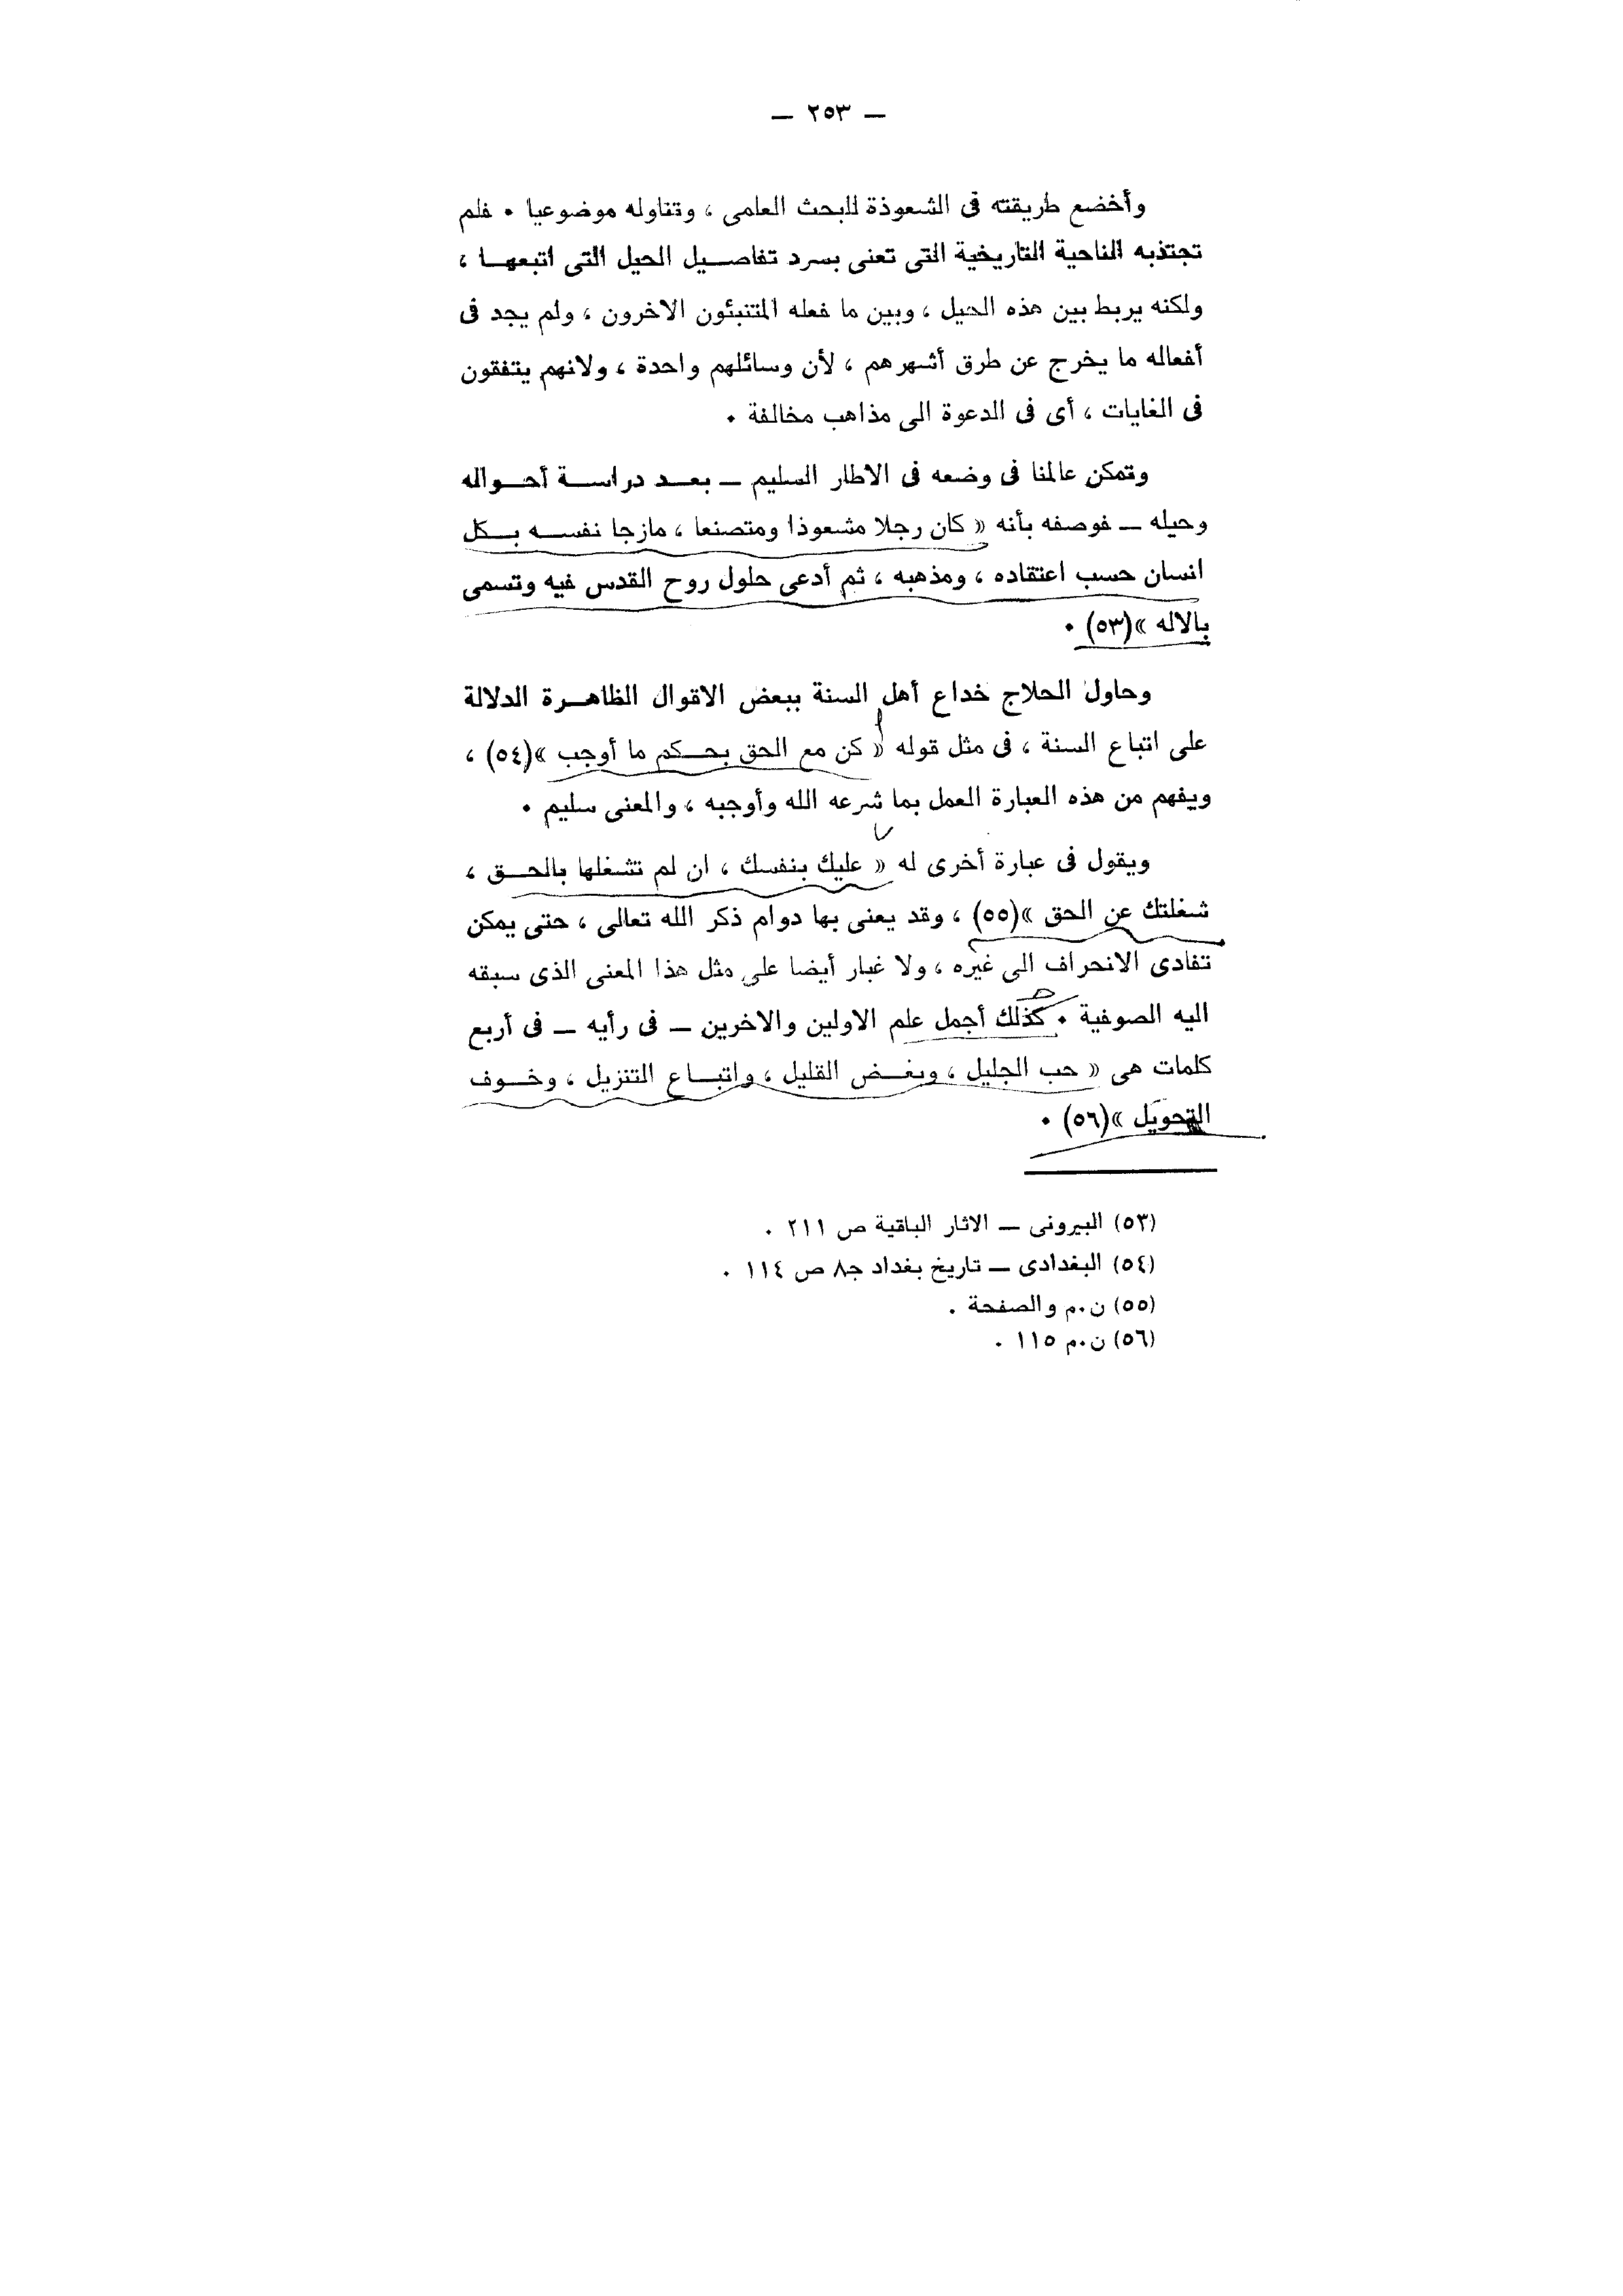 — ٢٥٣ —
وأخضع طريقته فى الشعوذة للبحث العلمى ، وتناوله موضوعيا ٠ فلم
تجتذبه الناحية التاريخية التى تعنى بسرد تفاصيل الحيل التى اتبعها ،
ولكنه يربط بين هذه الحيل ، وبين ما فعله المتنبئون الاخرون ، ولم يجد فى
أفعاله ما يخرج عن طرق أشهرهم ، لأن وسائلهم واحدة ، ولانهم يتفقون
فى الغايات ، أى فى الدعوة الى مذاهب مخالفة ٠
وتمكن عالمنا فى وضعه فى الاطار السليم — بعد دراسة أحواله
وحيله — فوصفه بأنه « كان رجلا مشعوذا ومتصنعا ، مازجا نفسه بكل
انسان حسب اعتقاده ، ومذهبه ، ثم أدعى حلول روح القدس فيه وتسمى
بالاله »(٥٣) ٠
وحاول الحلاج خداع أهل السنة ببعض الاقوال الظاهرة الدلالة
على اتباع السنة ، فى مثل قوله « كن مع الحق بحكم ما أوجب »(٥٤) ،
ويفهم من هذه العبارة العمل بما شرعه الله وأوجبه ، والمعنى سليم ٠
ويقول فى عبارة أخرى له « عليك بنفسك ، ان لم تشغلها بالحق ،
شغلتك عن الحق »(٥٥) ، وقد يعنى بها دوام ذكر الله تعالى ، حتى يمكن
تفادى الانحراف الى غيره ، ولا غبار أيضا على مثل هذا المعنى الذى سبقه
اليه الصوفية ٠ كذلك أجمل علم الاولين والاخرين — فى رأيه — فى أربع
كلمات هى « حب الجليل ، وبغض القليل ، واتباع التنزيل ، وخوف
التحويل »(٥٦) ٠
(٥٣) البيرونى — الاثار الباقية ص ٢١١ ٠
(٥٤) البغدادى — تاريخ بغداد ج٨ ص ١١٤ ٠
(٥٥) ن٠م والصفحة ٠
(٥٦) ن٠م ١١٥ ٠